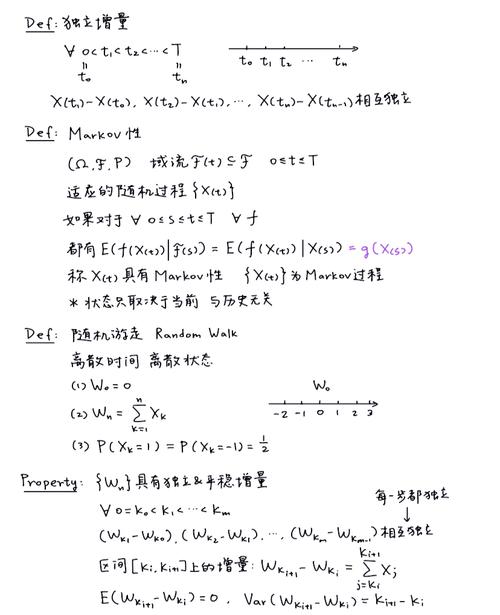 Def: 独立增量
∀ 0<t₁<t₂<…<T
t₀ tₙ
t₀ t₁ t₂ … tₙ
X(t₁)-X(t₀), X(t₂)-X(t₁), …, X(tₙ)-X(tₙ₋₁) 相互独立
Def: Markov 性
(Ω, F, P) 域流 F(t) ⊆ F 0≤t≤T
适应的随机过程 {X(t)}
如果对于 ∀ 0≤s≤t≤T ∀ f
都有 E(f(X(t))|F(s)) = E(f(X(t))|X(s)) = g(X(s))
称 X(t) 具有 Markov 性 {X(t)} 为 Markov 过程
* 状态只取决于当前 与历史无关
Def: 随机游走 Random Walk
离散时间 离散状态
(1) W₀ = 0
W₀
(2) Wₙ = ∑ₖ₌₁ⁿ Xₖ
-2 -1 0 1 2 3
(3) P(Xₖ=1) = P(Xₖ=-1) = 1/2
Property: {Wₙ} 具有独立&平稳增量
每一步都独立
∀ 0=k₀<k₁<…<kₘ
(W_{k₁}-W_{k₀}), (W_{k₂}-W_{k₁}), …, (W_{kₘ}-W_{kₘ₋₁}) 相互独立
区间 [kᵢ, kᵢ₊₁] 上的增量: W_{kᵢ₊₁} - W_{kᵢ} = ∑_{j=kᵢ}^{kᵢ₊₁} Xⱼ
E(W_{kᵢ₊₁}-W_{kᵢ}) = 0, Var(W_{kᵢ₊₁}-W_{kᵢ}) = kᵢ₊₁ - kᵢ